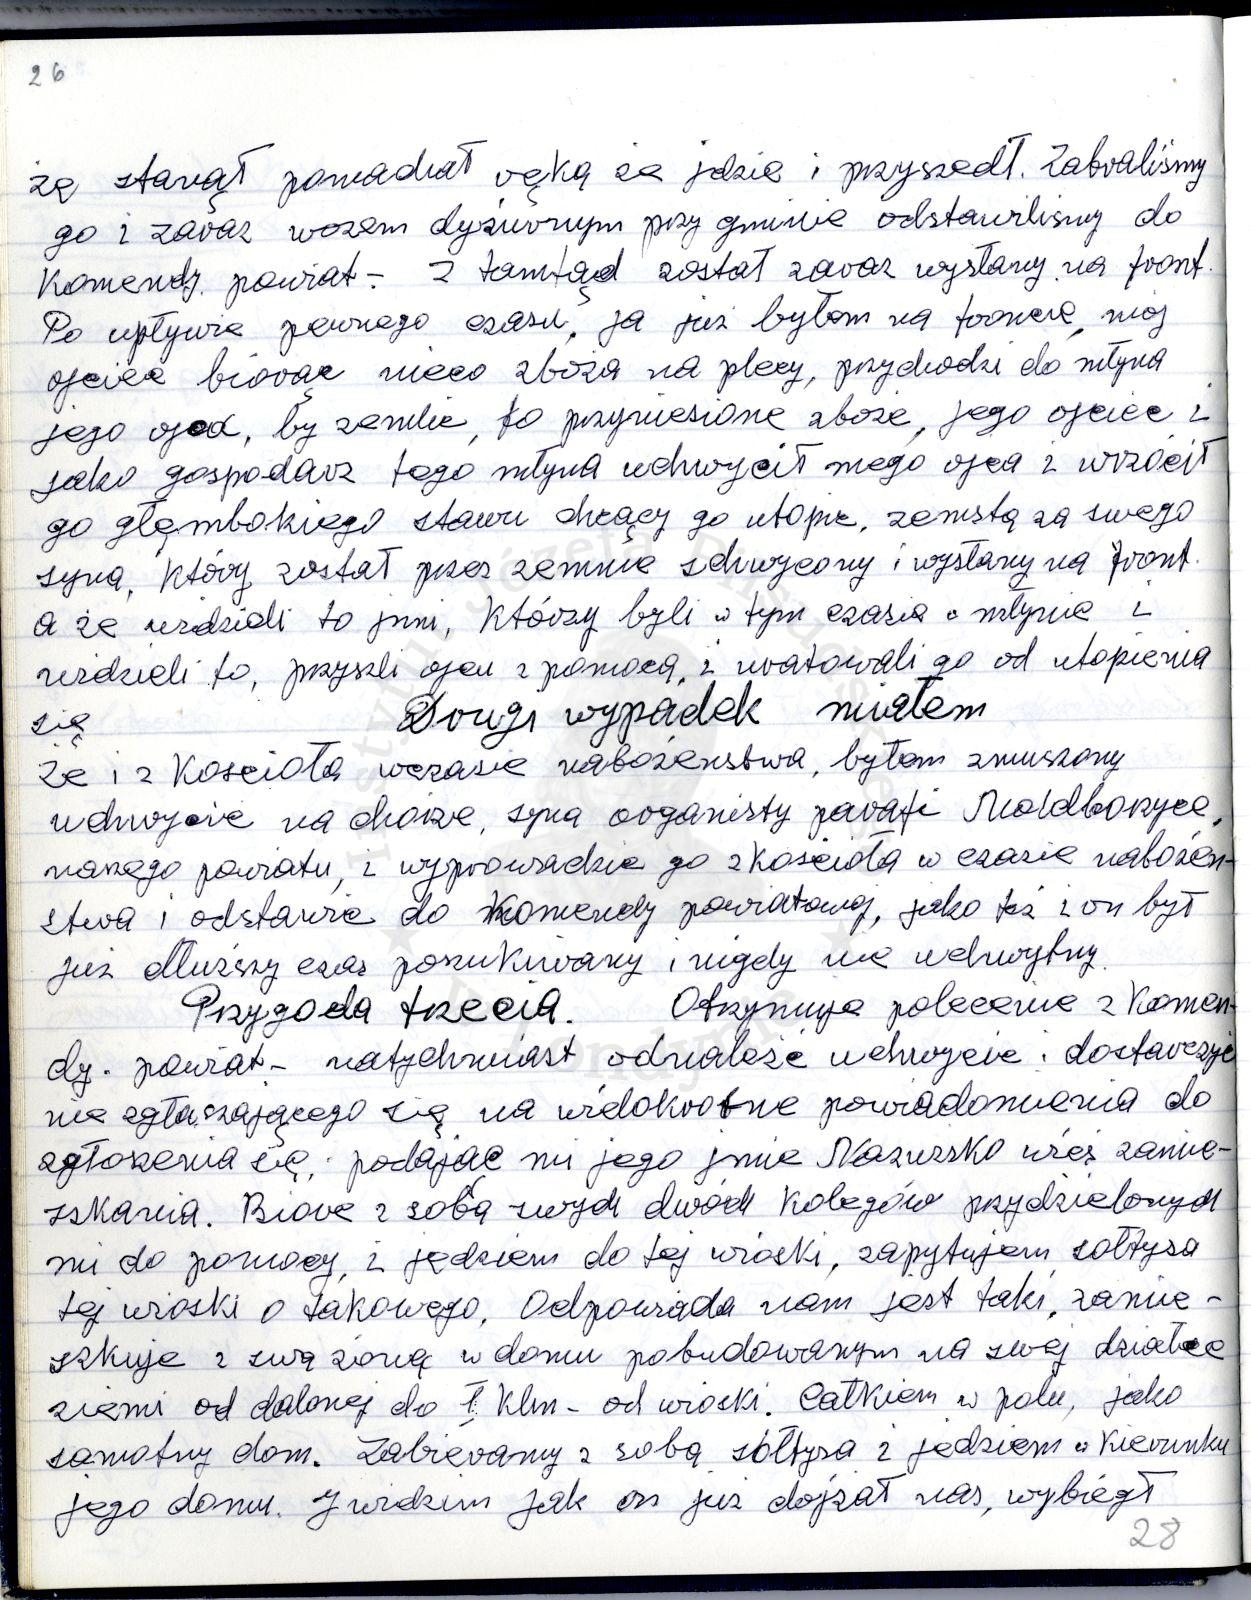 26
żę stanął pomachał ręką że jdzie i przyszedł. Zabraliśmy
go i zaraz wozem dyżurnym przy gminie odstawiliśmy do
Komendy. powiat- Z tamtąd został zaraz wysłany na front.
Po upływie pewnego czasu, ja już byłem na froncie, mój
ojciec biorąc nieco zboża na plecy, przychodzi do młyna
jego ojca, by zemlić, to przyniesione zboże, jego ojciec i
jako gospodarz tego młyna uchwycił mego ojca i wrzócił
go głęmbokiego stawu chcący go utopić, zemstą za swego
syna, Który został przez zemnie schwycony i wysłany na front.
a że widzieli to jnni, Którzy byli w tym czasie w młynie i
widzieli to, przyszli ojcu z pomocą, i uratowali go od utopienia
się Drugi wypadek miałem
Że i z Kościoła wczasie nabożenstwa, byłem zmuszony
uchwycić na chórze, syna organisty parafi Modliborzyce,
naszego powiatu, i wyprowadzić go z Kościoła w czasie nabożen-
stwa i odstawić do Komendy powiatowej, jako też i on był
już dłuższy czas poszukiwany i nigdy nie uchwytny.
Przygoda trzecia. Otrzymuje polecenie z Komen-
dy. powiat- natychmiast odnaleść uchwycić i dostarczyć
nie zgłaszającego się na wielokrotne powiadomienia do
zgłoszenia się, podając mi jego jmie Nazwisko wieś zamie-
szkania. Biorę z sobą swych dwóch Kolegów przydzielonych
mi do pomocy, i jędziem do tej wioski, zapytujem sołtysa
tej wioski o takowego, Odpowiada nam jest taki, zamie-
szkuje z swą żoną w domu pobudowanym na swej działce
ziemi od dalonej do 1 klm- od wioski. Całkiem w polu, jako
samotny dom. Zabieramy z sobą sołtysa i jedziem w Kierunku
jego domu. J widzim jak on już dojżał nas, wybiegł
28
Instytut Józefa Piłsudskiego
Londynie